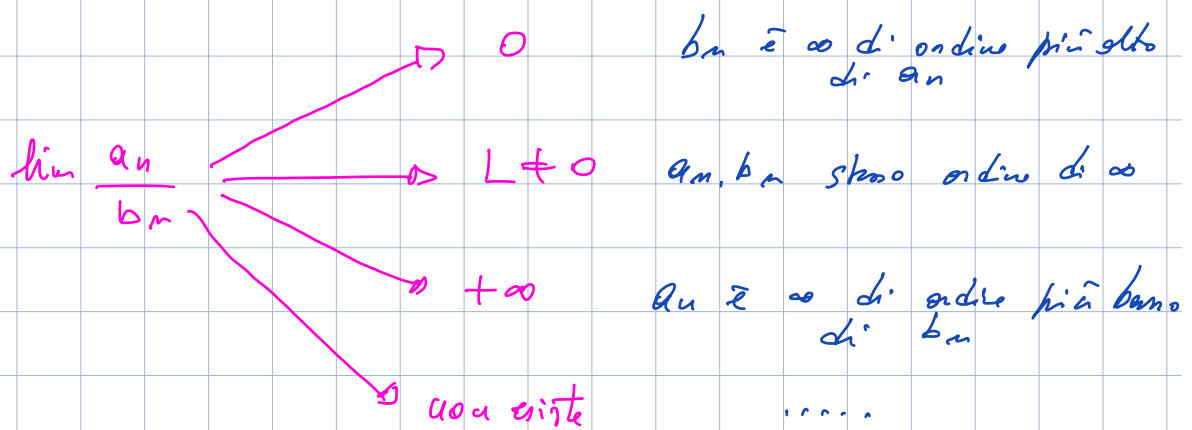 0 bn ē ∞ di ordine più alto
di an
lim an/bn L ≠ 0 an, bn stesso ordine di ∞
+∞ an ē ∞ di ordine più basso
di bn
non esiste .....